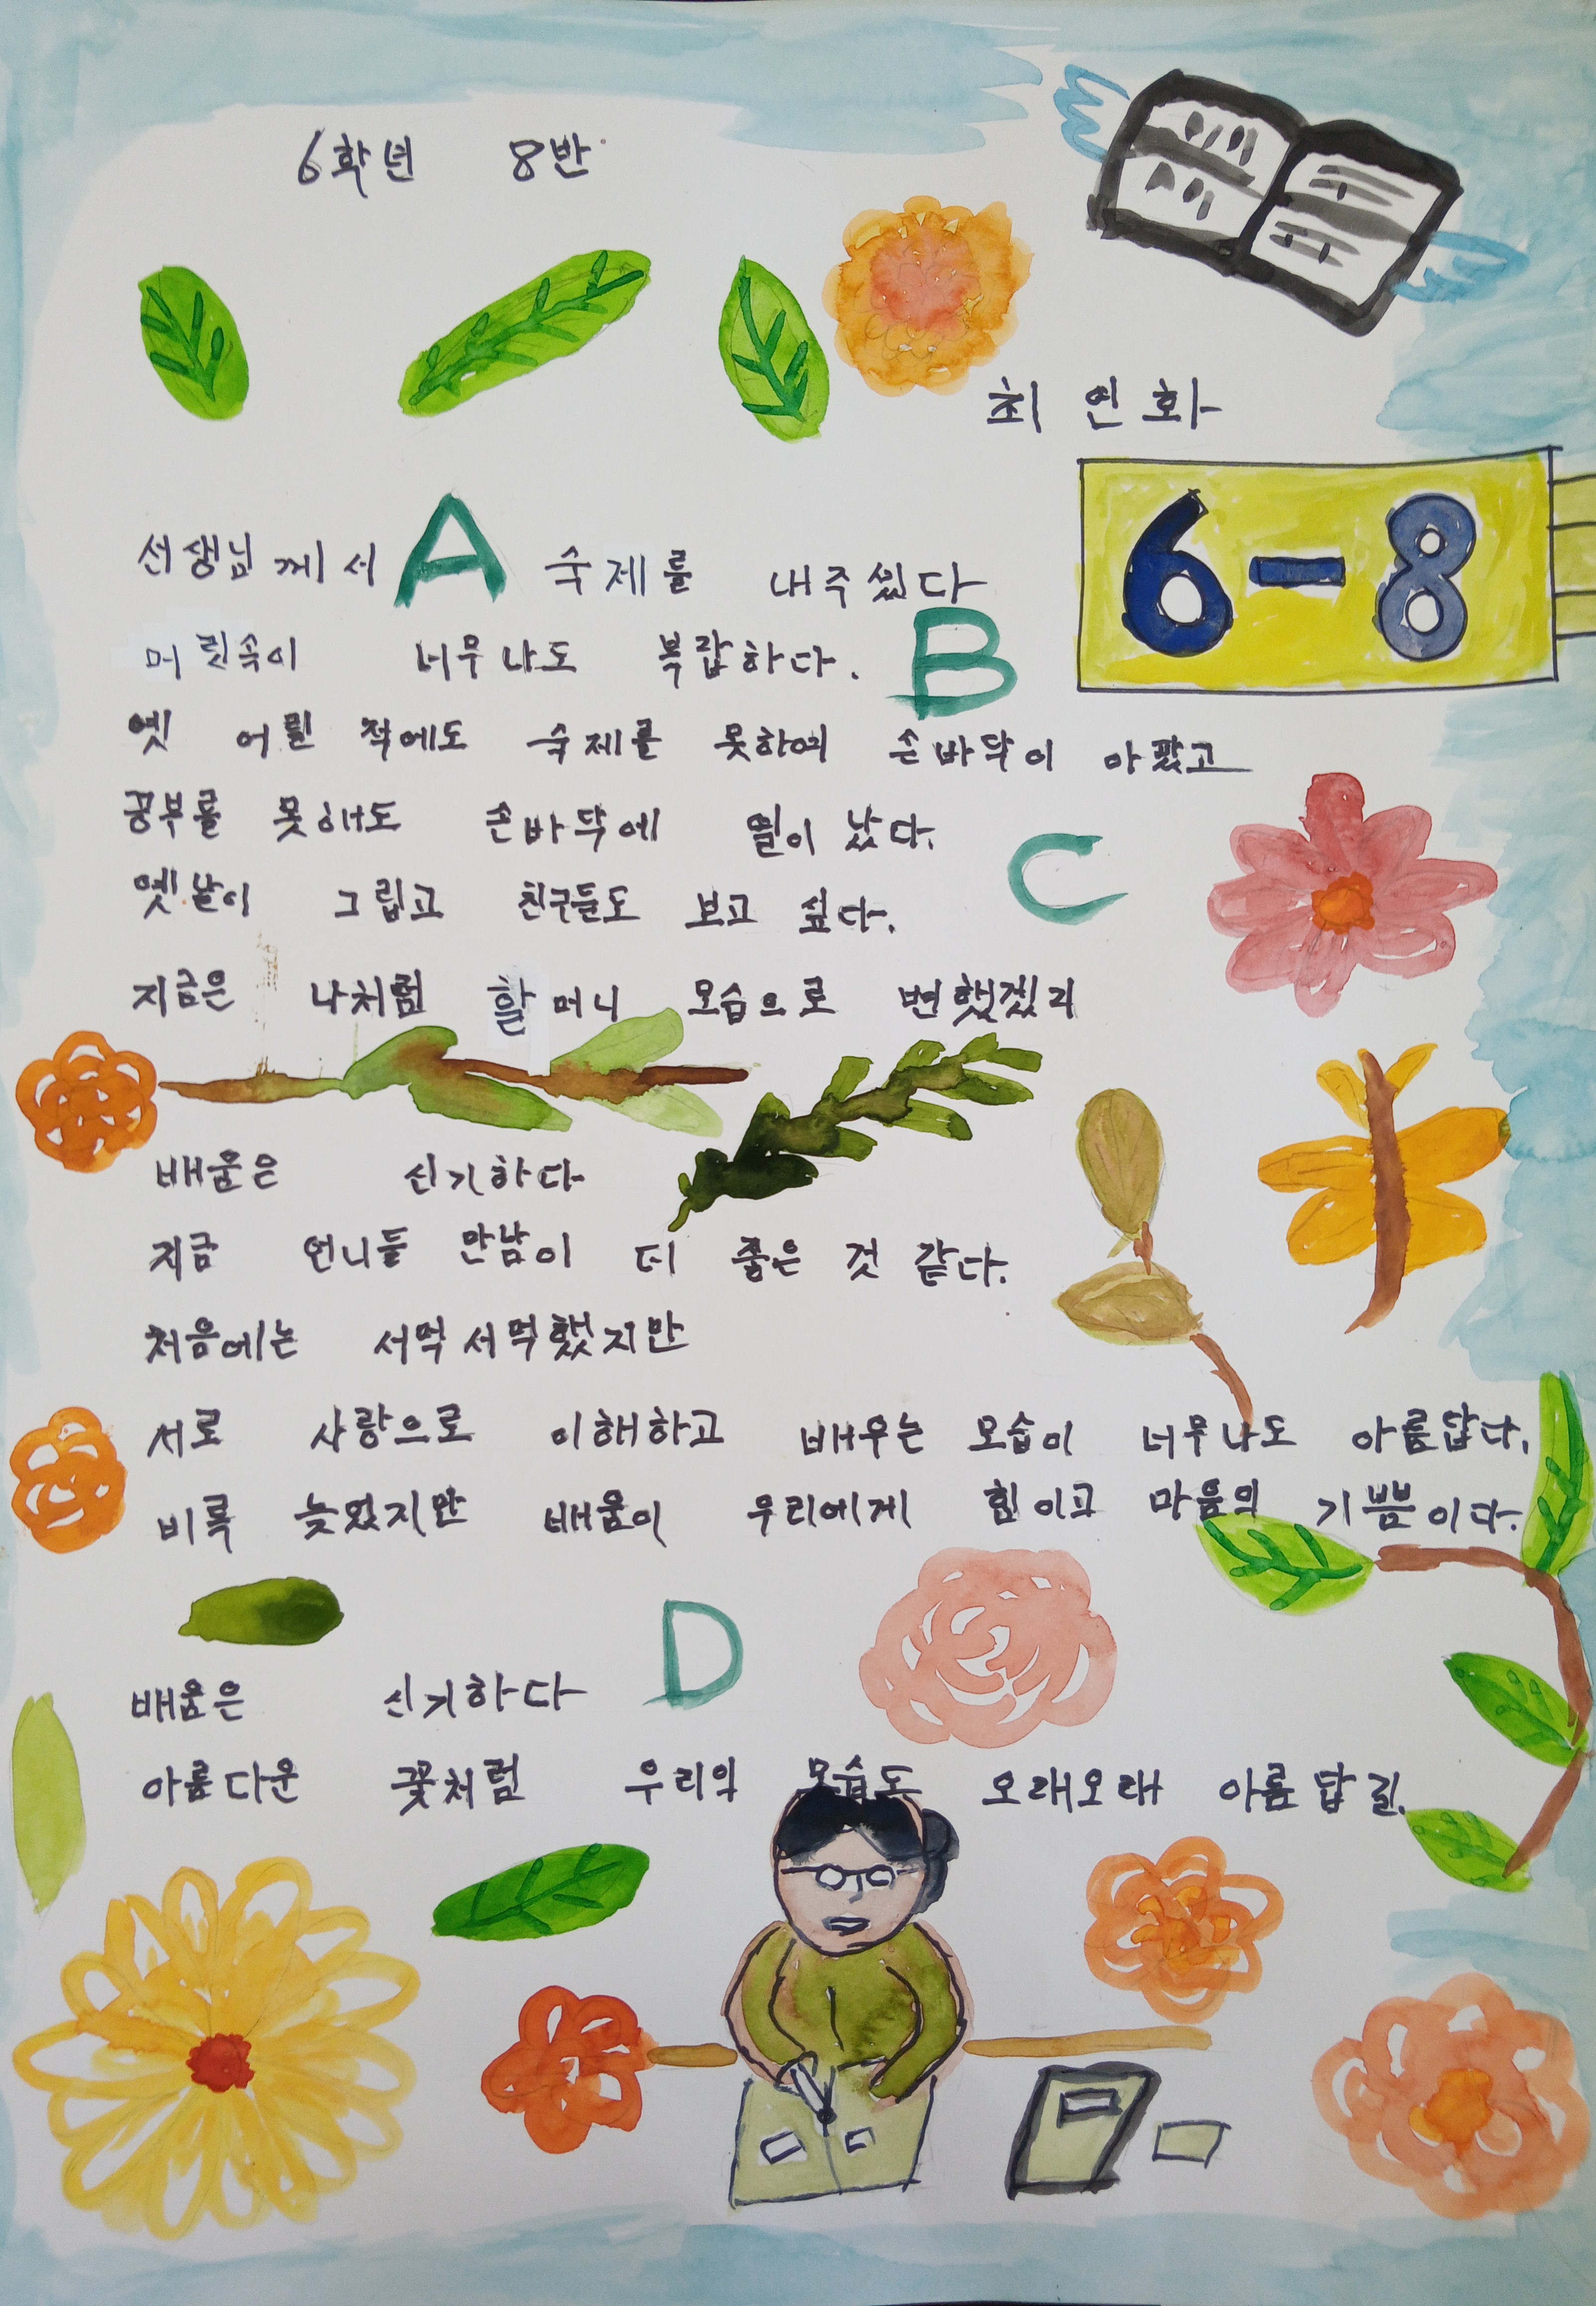 6학년 8반
최인화
6-8
선생님께서 A 숙제를 내주셨다
머릿속이 너무나도 복잡하다. B
옛 어린 적에도 숙제를 못하여 손바닥이 아팠고
공부를 못해도 손바닥에 불이 났다.
옛날이 그립고 친구들도 보고 싶다. C
지금은 나처럼 할머니 모습으로 변했겠지
배움은 신기하다
지금 언니들 만남이 더 좋은 것 같다.
처음에는 서먹서먹했지만
서로 사랑으로 이해하고 배우는 모습이 너무나도 아름답다.
비록 늦었지만 배움이 우리에게 힘이고 마음의 기쁨이다.
D
배움은 신기하다
아름다운 꽃처럼 우리의 모습도 오래오래 아름답길.